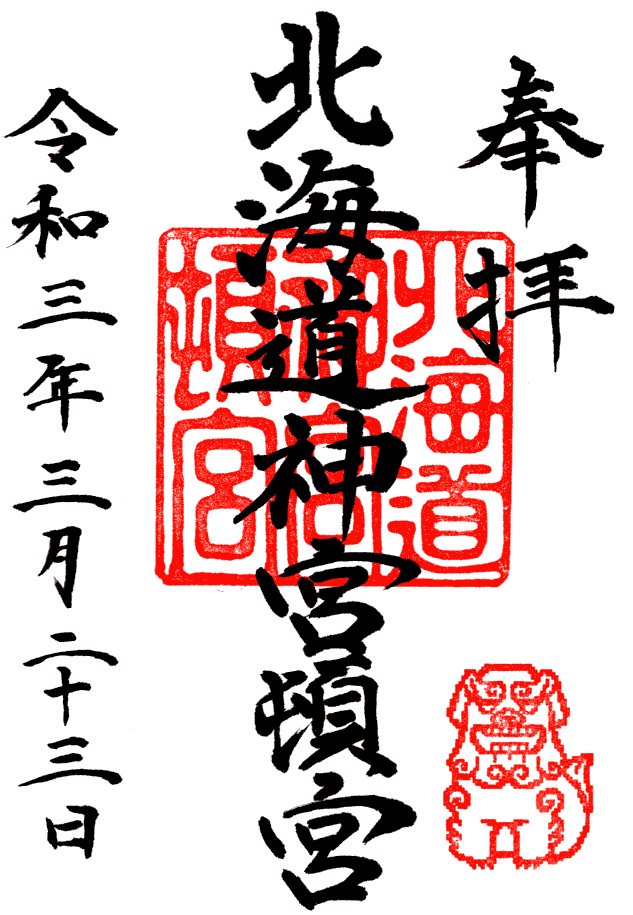 奉拝
北海道神宮頓宮
北海道神宮頓宮
令和三年三月二十三日